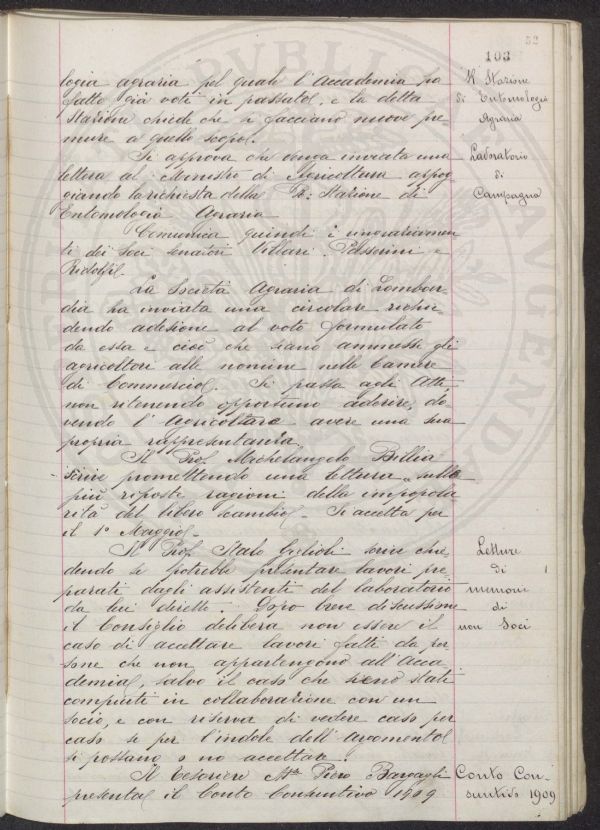 52
103
logia agraria pel quale l'Accademia ha
fatto già voti in passato, e la detta
Stazione chiede che si facciano nuove pre
mure a quello scopo.
Si approva che venga inviata una
lettera al Ministro di Agricoltura appog
giando la richiesta della R. Stazione di
Entomologia Agraria
Comunica quindi i ringraziamen
ti dei Soci Senatori Villari, Passerini e
Ridolfi.
La Società Agraria di Lombar
dia ha inviata una circolare richie
dendo adesione al voto formulato
da essa e cioè che siano ammessi gli
agricoltori alle nomine nelle Camere
di Commercio. Si passa agli Atti,
non ritenendo opportuno aderire, do
vendo l'Agricoltura avere una sua
propria rappresentanza.
Il Prof. Michelangelo Billia
scrive promettendo una lettura "sulle
più riposte ragioni della impopola
rità del libero scambio". Si accetta per
il 1° Maggio.
Il Prof. Italo Giglioli scrive chie
dendo se potrebbe presentare lavori pre
parati dagli assistenti del laboratorio
da lui diretto. Dopo breve discussione
il Consiglio delibera non essere il
caso di accettare lavori fatti da per
sone che non appartengono all'Acca
demia, salvo il caso che sieno stati
compiuti in collaborazione con un
socio, e con riserva di vedere caso per
caso se per l'indole dell'argomento
si possano o no accettare.
Il Tesoriere Mse Piero Bargagli
presenta il Conto Consuntivo 1909
R. Stazione
di Entomologia
Agraria
Laboratorio
di
Campagna
Letture
di
memorie
di
non Soci
Conto Con-
suntivo 1909